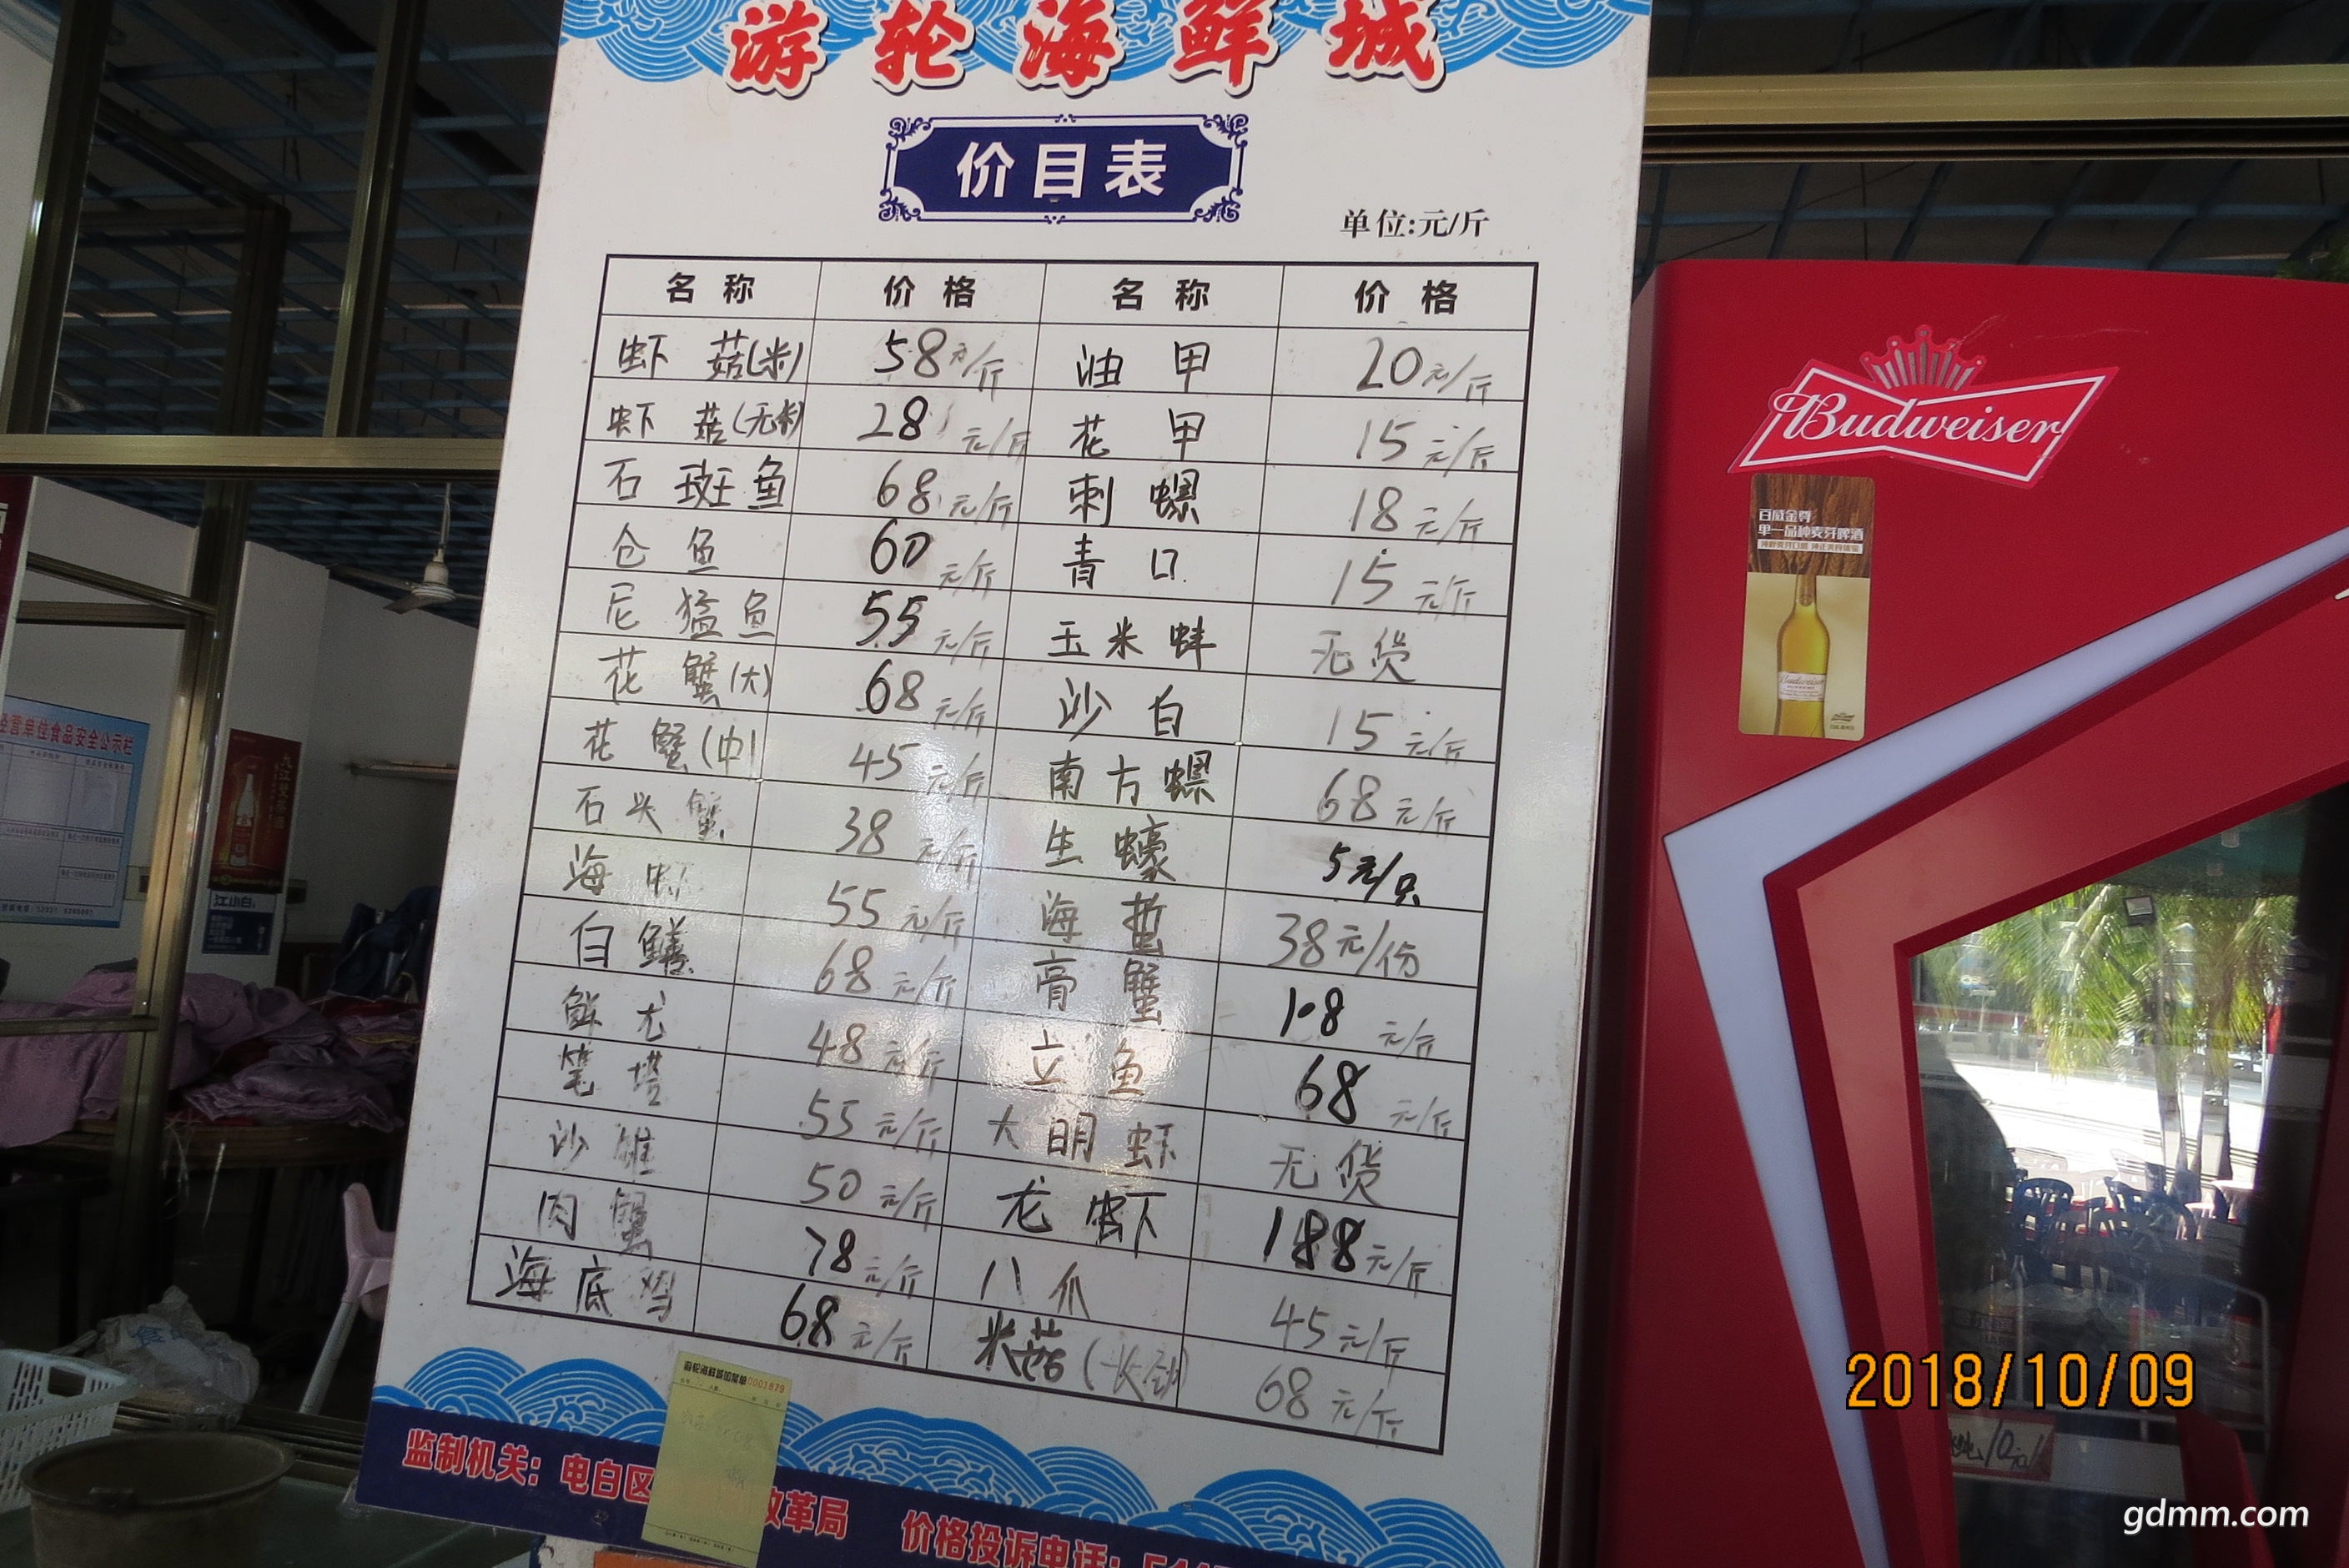 游轮海鲜城
价目表
单位:元/斤
名称 价格 名称 价格
虾菇(米) 58元/斤 油甲 20元/斤
虾菇(无米) 28元/斤 花甲 15元/斤
石斑鱼 68元/斤 刺螺 18元/斤
仓鱼 60元/斤 青口 15元/斤
尼猛鱼 55元/斤 玉米蚌 无货
花蟹(大) 68元/斤 沙白 15元/斤
花蟹(中) 45元/斤 南方螺 68元/斤
石头蟹 38元/斤 生蠔 5元/只
海虾 55元/斤 海蜇 38元/份
白鳝 68元/斤 膏蟹 108元/斤
鲜尤 48元/斤 立鱼 68元/斤
笔塔 55元/斤 大明虾 无货
沙雄 50元/斤 龙虾 188元/斤
肉蟹 78元/斤 八爪 45元/斤
海底鸡 68元/斤 米菇( 68元/斤
游轮海鲜城加菜单 0001879
监制机关: 电白区 改革局 价格投诉电话:
Budweiser
百威金尊
单一品种麦芽啤酒
经营单位食品安全公示栏
九江双蒸
江小白
2018/10/09
gdmm.com